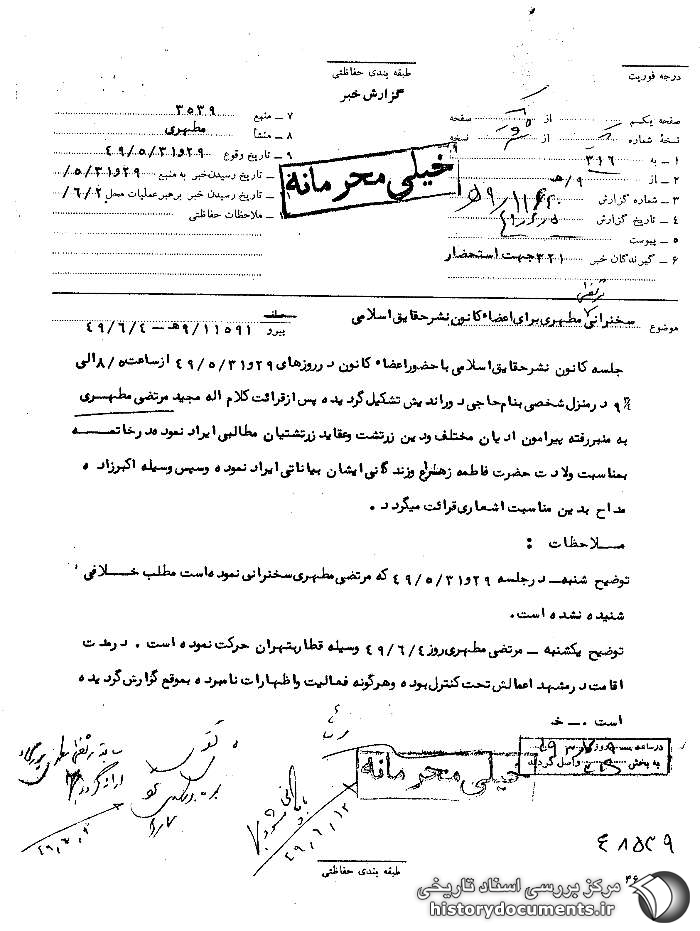 طبقه بندی حفاظتی
درجه فوریت
گزارش خبر
صفحه یکم از صفحه
نسخهٔ شماره از نسخه
۱ ـ به ۳۱۶
۲ ـ از ۹/ﻫ
۳ ـ شماره گزارش
۴ ـ تاریخ گزارش
۵ ـ پیوست
۶ ـ گیرندگان خبر ۳۲۱ جهت استحضار
۷ ـ منبع ۳۵۳۹
۸ ـ منشأ مطهری
۹ ـ تاریخ وقوع ۲۹و۴۹/۵/۳۱
ـ تاریخ رسیدن خبر به منبع ۲۹و۵/۳۱/
ـ تاریخ رسیدن خبر برهبر عملیات محل ۶/۲/
ـ ملاحظات حفاظتی
خیلی محرمانه
موضوع سخنرانی مرتضی مطهری برای اعضاء کانون نشر حقایق اسلامی
پیرو ۹/۱۱۵۹۱ﻫ ـ ۴۹/۶/۴
جلسه کانون نشر حقایق اسلامی با حضور اعضاء کانون در روزهای ۲۹و۴۹/۵/۳۱ از ساعت ۸/۵ الی
۹ در منزل شخصی بنام حاجی دوراندیش تشکیل گردیده پس از قرائت کلام اله مجید مرتضی مطهری
به منبر رفته پیرامون ادیان مختلف و دین زرتشت و عقاید زرتشتیان مطالبی ایراد نمود در خاتمه
بمناسبت ولادت حضرت فاطمه زهرا و زندگانی ایشان بیاناتی ایراد نموده و سپس وسیله اکبرزاده
مداح بدین مناسبت اشعاری قرائت میگردد.
ملاحظات :
توضیح شنبه ـ در جلسه ۲۹و۴۹/۵/۳۱ که مرتضی مطهری سخنرانی نموده است مطلب خلافی
شنیده نشده است.
توضیح یکشنبه ـ مرتضی مطهری روز ۴۹/۶/۴ وسیله قطار بتهران حرکت نموده است. در مدت
اقامت در مشهد اعمالش تحت کنترل بوده و هرگونه فعالیت و اظهارات نامبرده بموقع گزارش گردیده
است. ـ خ
در ساعت روز
به بخش واصل گردید
خیلی محرمانه
۴۹/۶/۱۲
۴۸۵۳۹
طبقه بندی حفاظتی
۴۶
مرکز بررسی اسناد تاریخی
historydocuments.ir